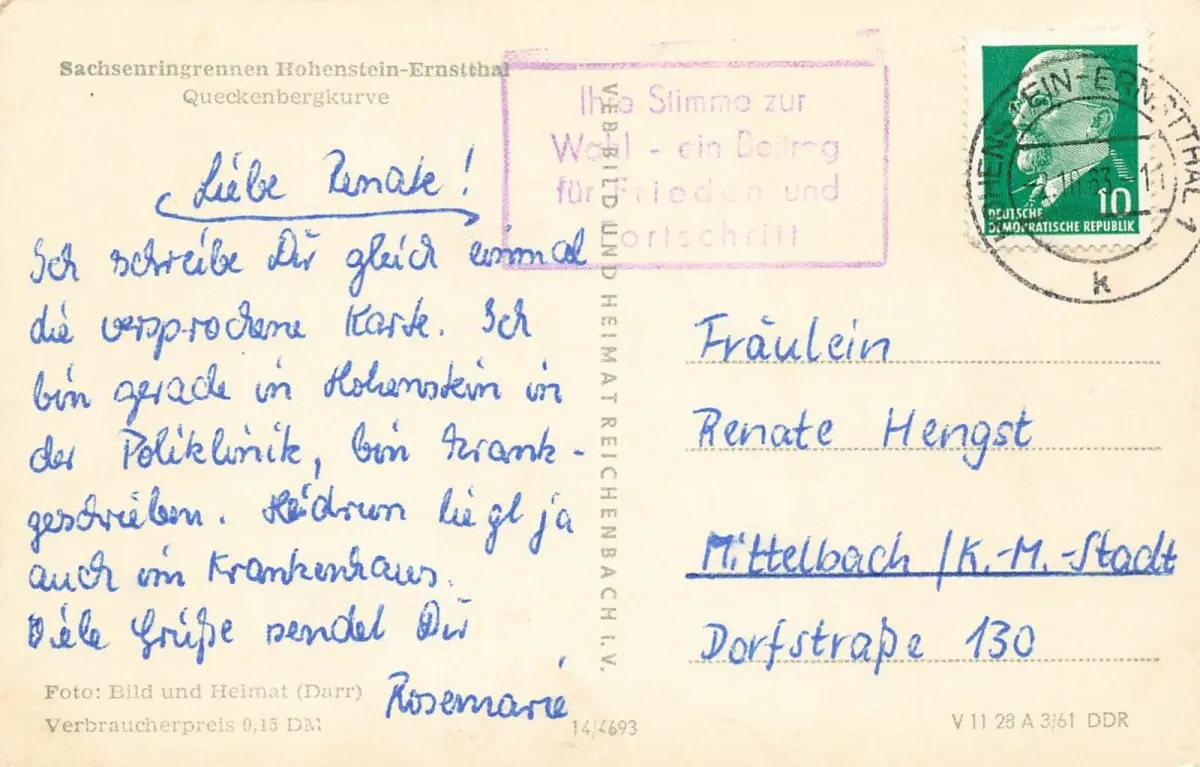 Sachsenringrennen Hohenstein-Ernstthal
Queckenbergkurve
Ihre Stimme zur
Wahl - ein Beitrag
für Frieden und
Fortschritt
10
DEUTSCHE
DEMOKRATISCHE REPUBLIK
HOHENSTEIN-ERNSTTHAL 1
k
Liebe Renate!
Ich schreibe Dir gleich einmal
die versprochene Karte. Ich
bin gerade in Hohenstein in
der Poliklinik, bin krank-
geschrieben. Heidrun liegt ja
auch im Krankenhaus.
Viele Grüße sendet Dir
Rosemarie
VEB BILD UND HEIMAT REICHENBACH I. V.
Fräulein
Renate Hengst
Mittelbach /K.-M.-Stadt
Dorfstraße 130
Foto: Bild und Heimat (Darr)
Verbraucherpreis 0,15 DM
14/4693
V 11 28 A 3/61 DDR